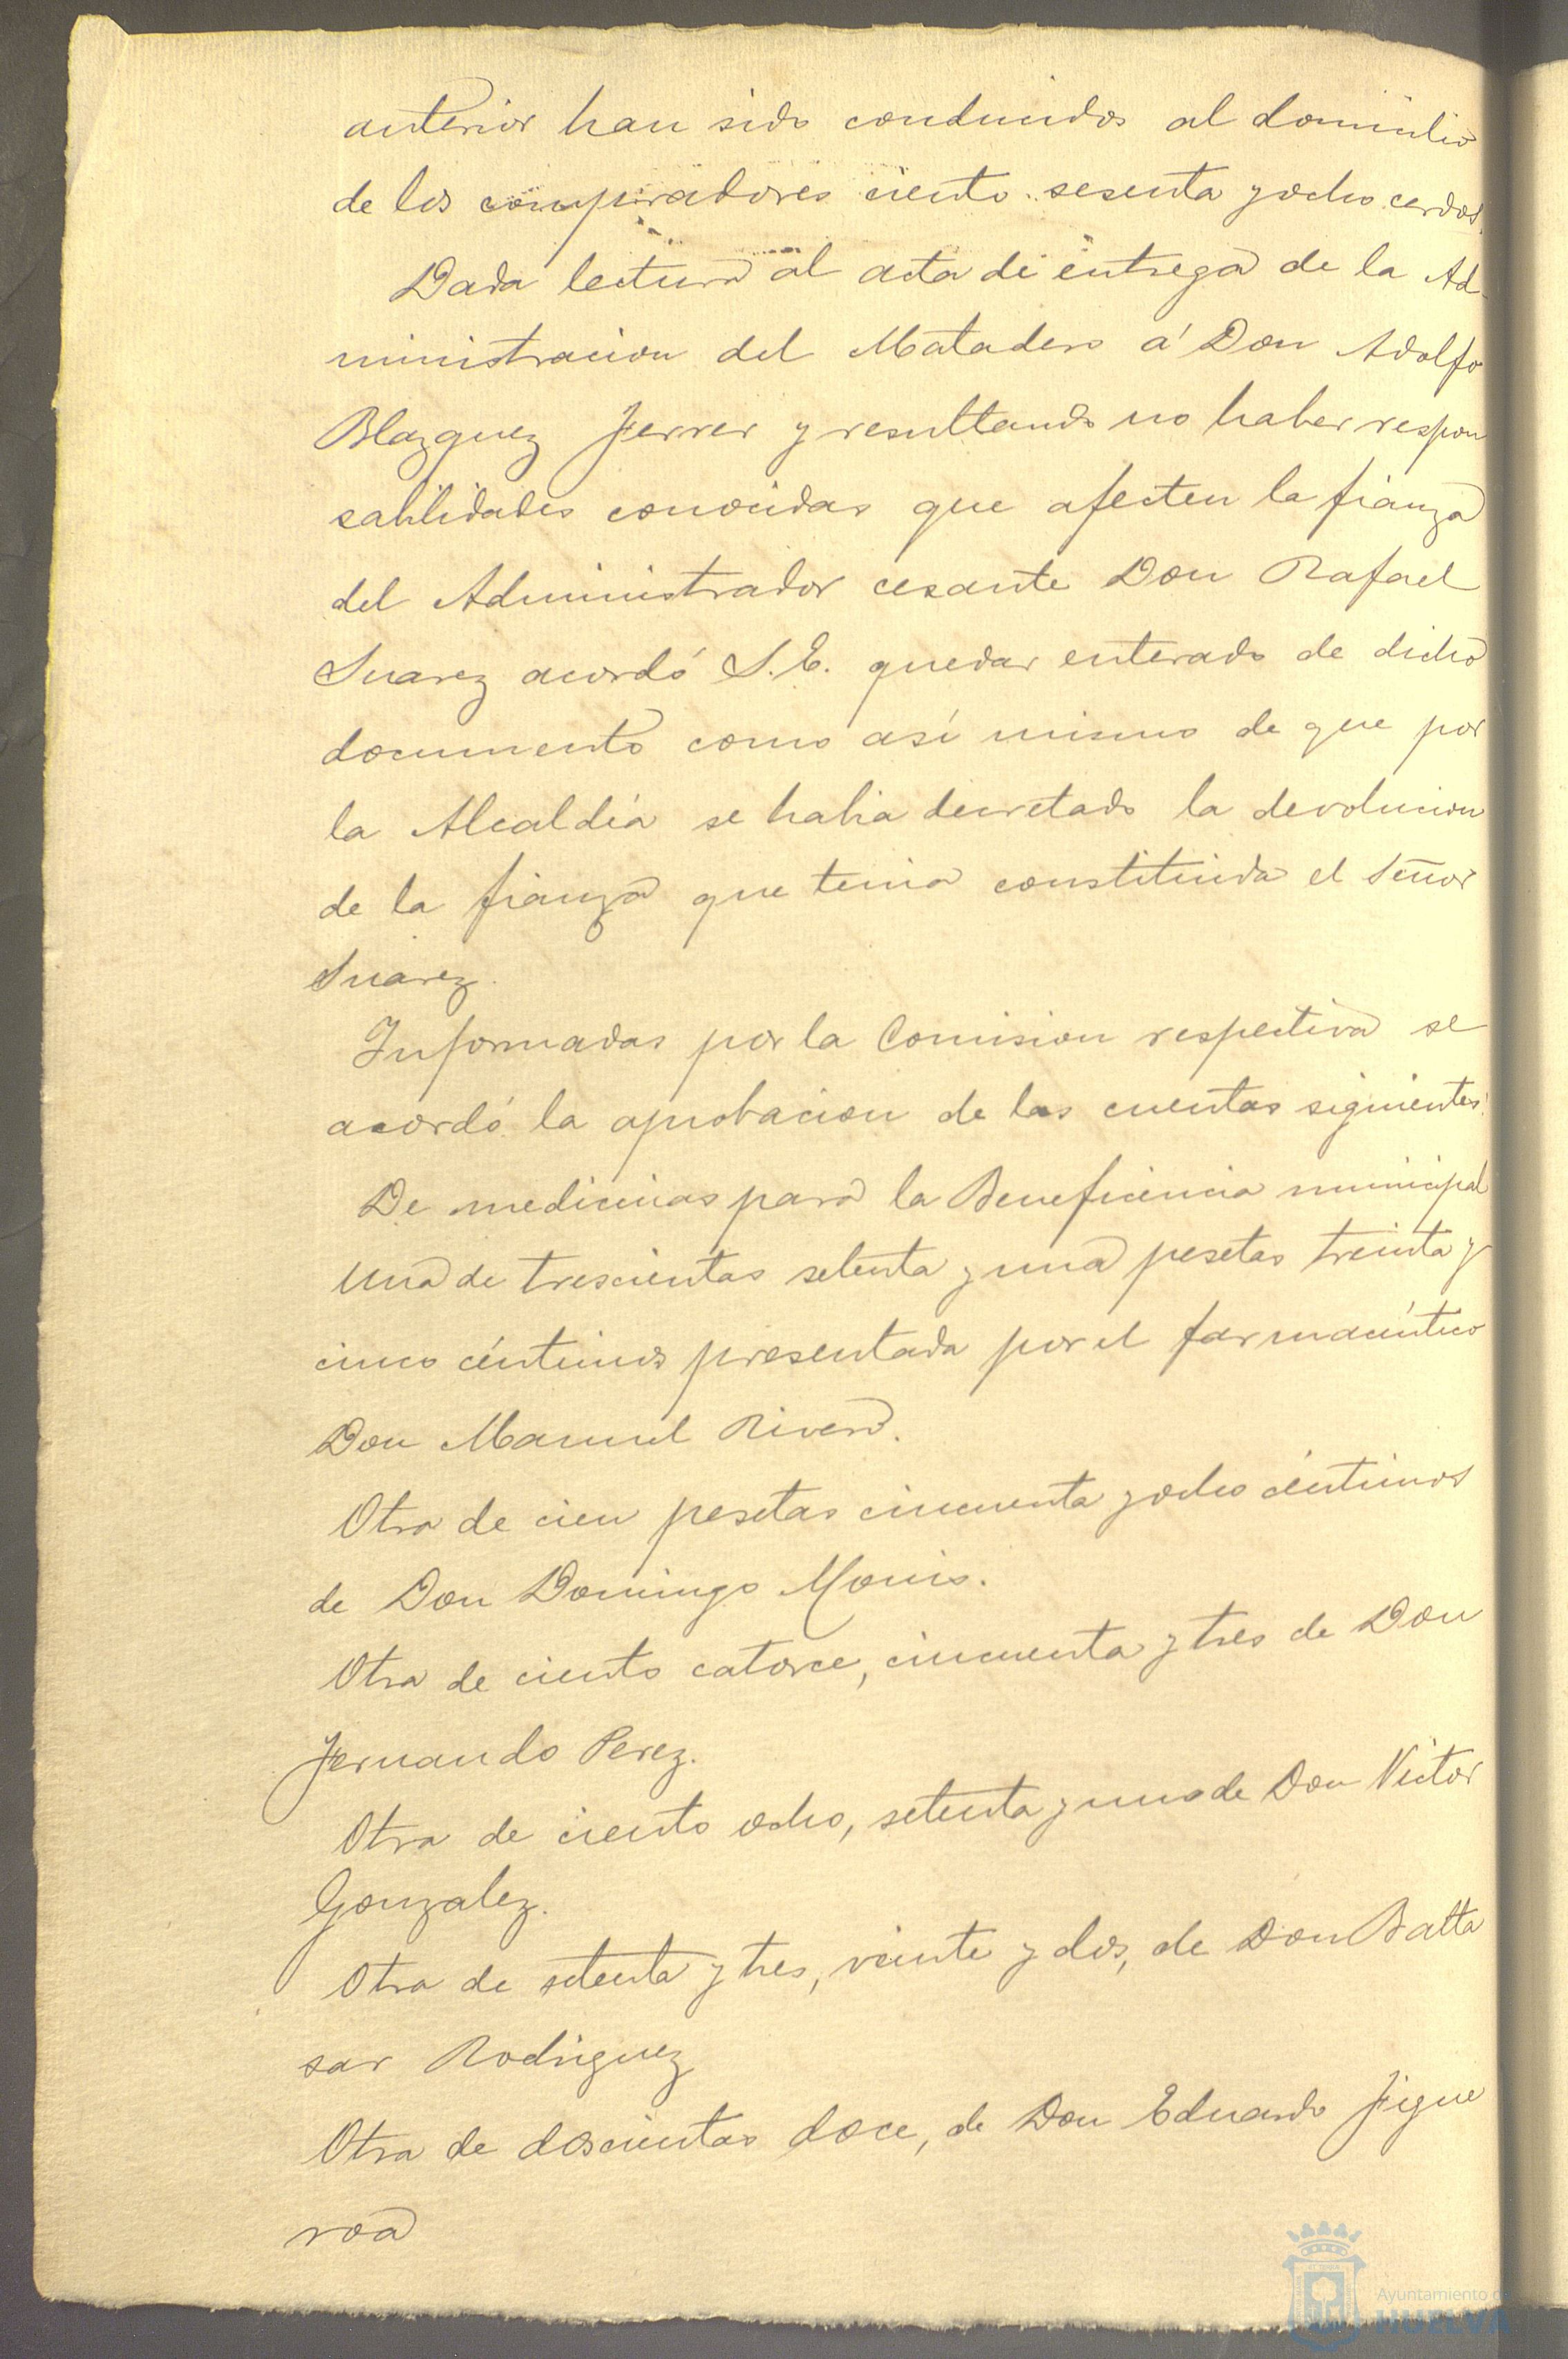 anterior han sido conducidos al domicilio
de los compradores ciento sesenta y ocho cerdos.
Dada lectura al acta de entrega de la Ad-
ministracion del Matadero á Don Adolfo
Blazquez Ferrer y resultando no haber respon
sabilidades conocidas que afecten la fianza
del Administrador cesante Don Rafael
Suarez acordó S.E. quedar enterado de dicho
documento como así mismo de que por
la Alcaldía se habia decretado la devolucion
de la fianza que tenia constituida el Señor
Suarez.
Informadas por la Comision respectiva se
acordó la aprobacion de las cuentas siguientes:
De medicinas para la Beneficencia municipal
Una de trescientas setenta y una pesetas treinta y
cinco céntimos presentada por el farmacéutico
Don Manuel Rivera.
Otra de cien pesetas cincuenta y ocho céntimos
de Don Domingo Monis.
Otra de ciento catorce, cincuenta y tres de Don
Fernando Perez.
Otra de ciento ocho, setenta y uno de Don Victor
Gonzalez.
Otra de setenta y tres, veinte y dos, de Don Balta
sar Rodriguez
Otra de doscientas doce, de Don Eduardo Figue
roa
Ayuntamiento de
HUELVA